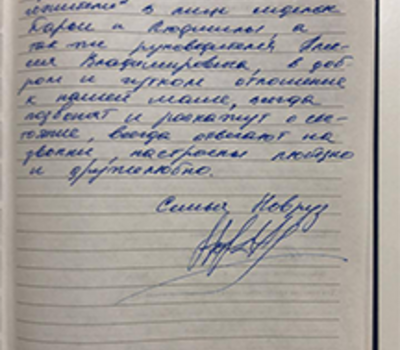 в лице сиделок
Ларои и Людмилы, а
так же руководителя, Але-
сия Владимировича, в доб-
ром и чутком отношение
к нашей маме, всегда
позвонят и расскажут о све-
тожие, всегда отвечают на
звонки, настроены любезно
и дружелюбно.
Семья Новруз